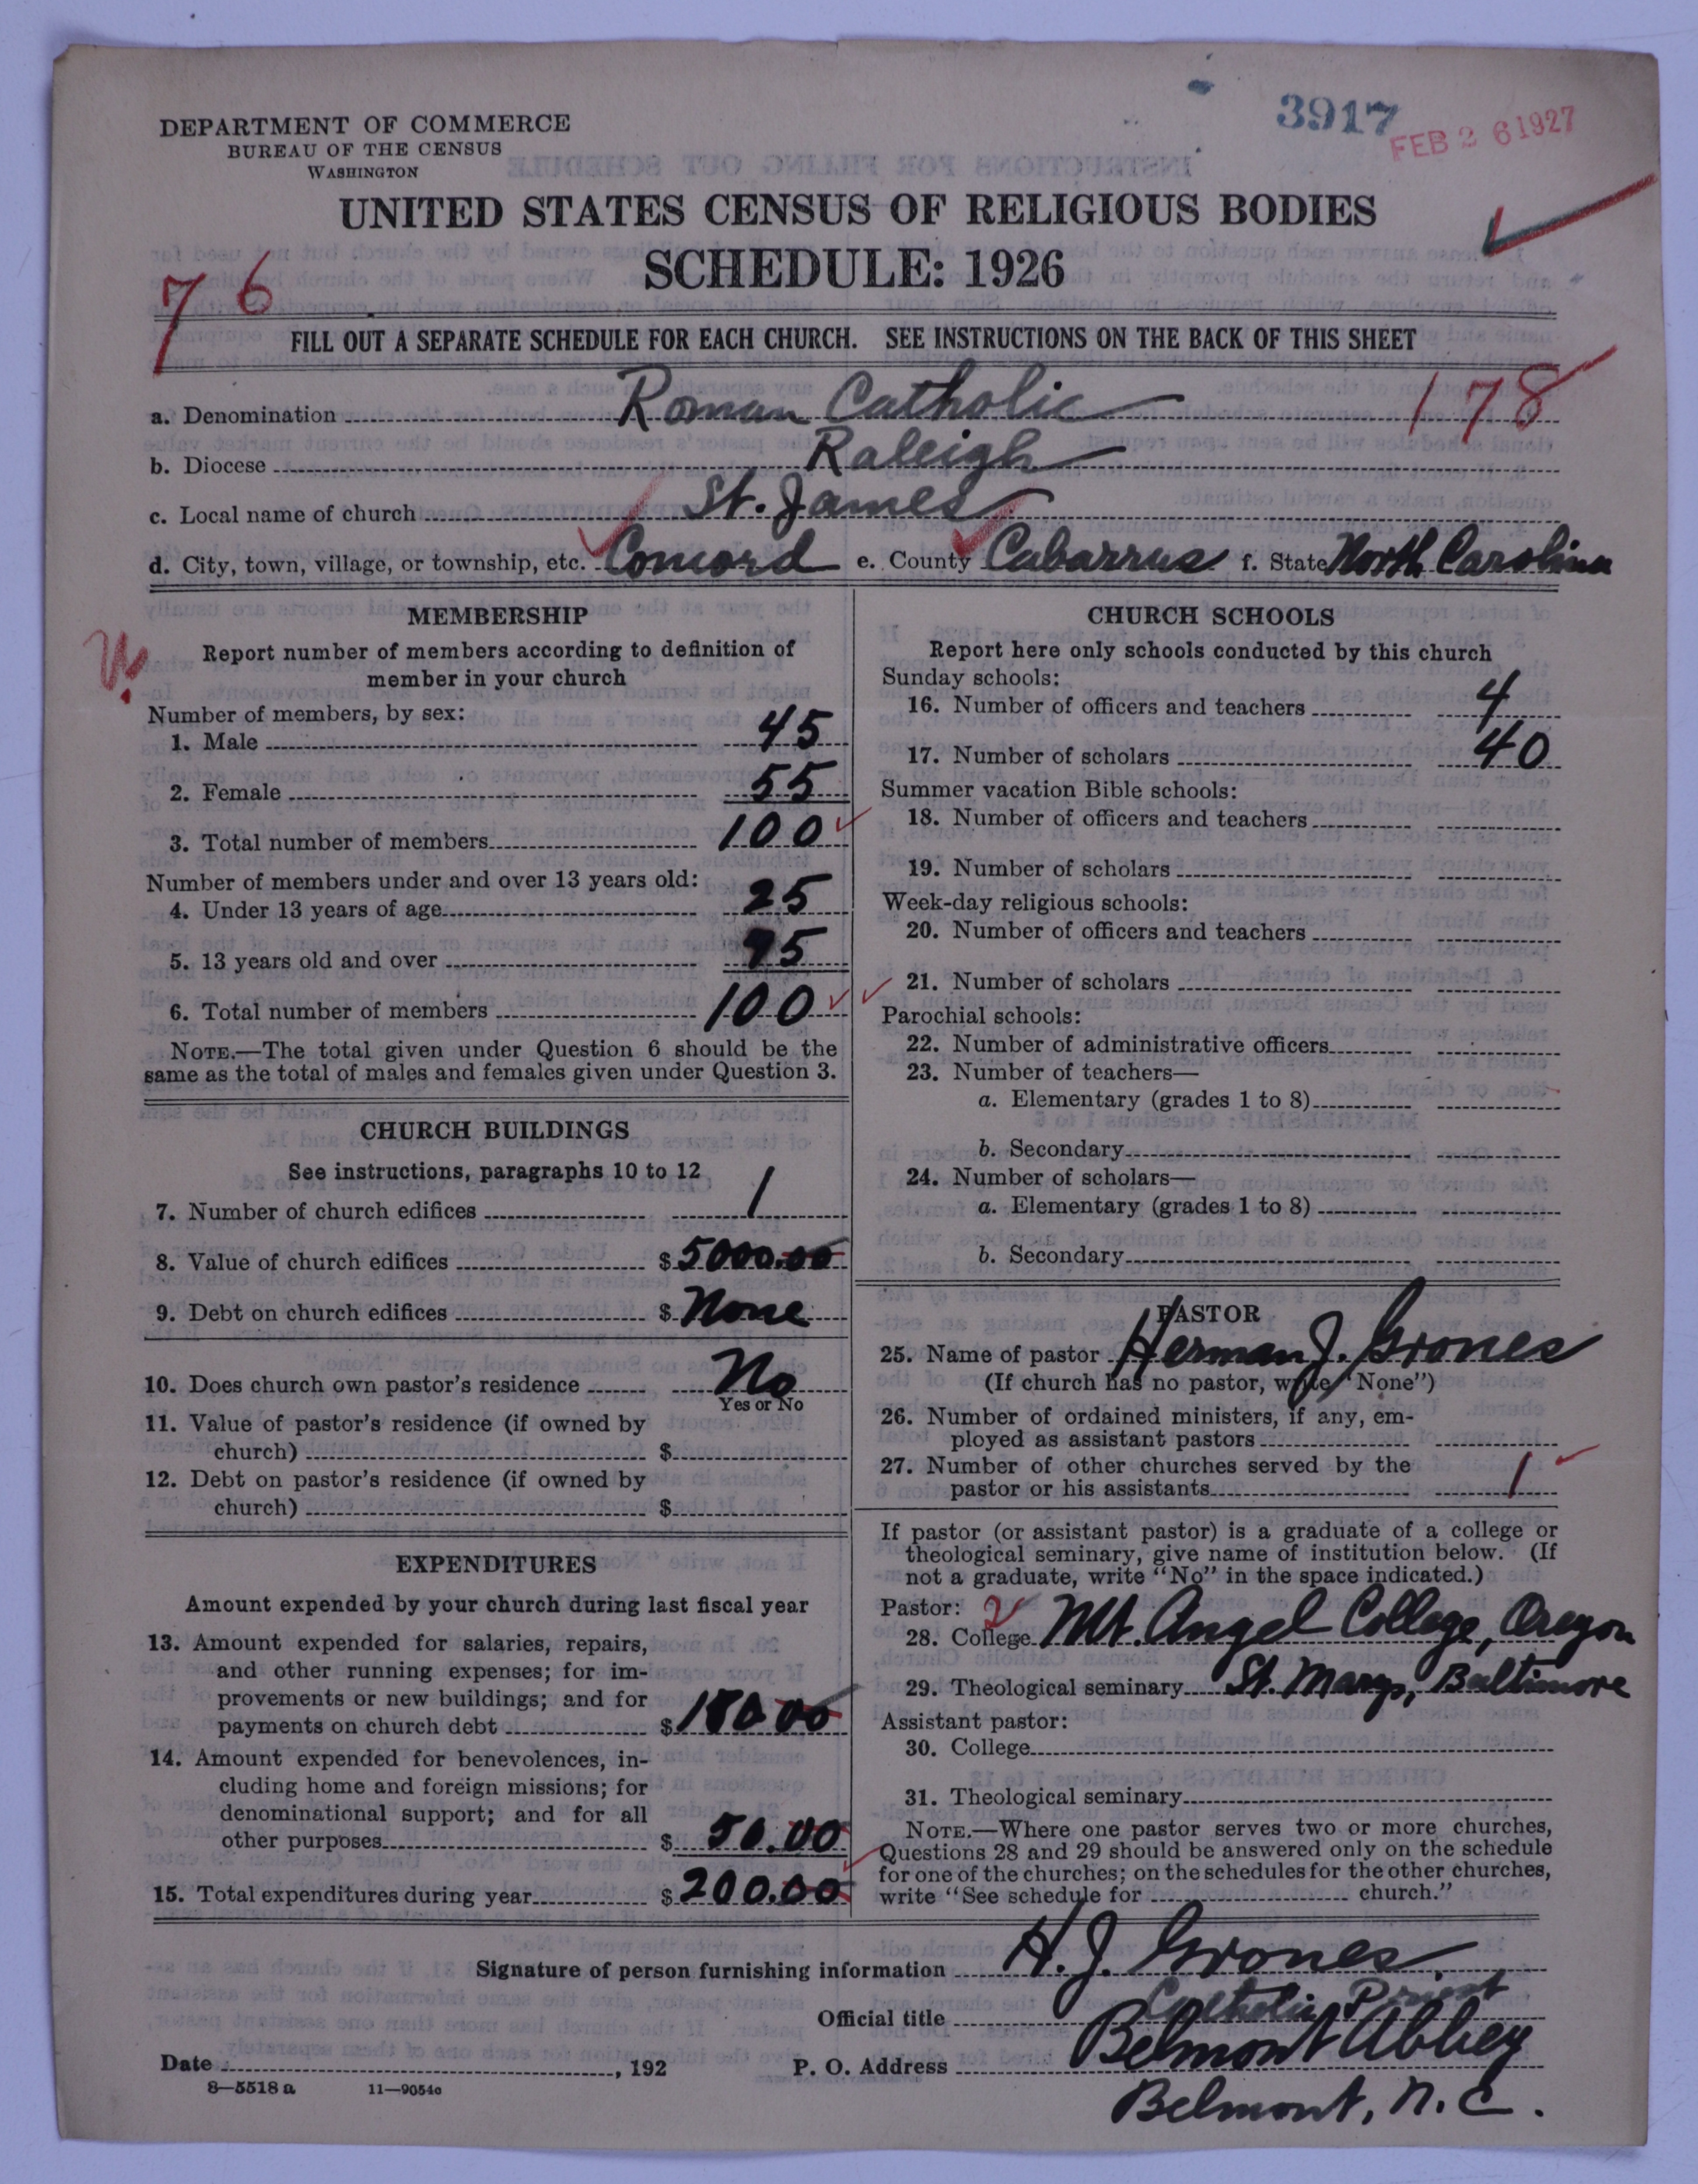 3917
FEB 26 1927
DEPARTMENT OF COMMERCE
BUREAU OF THE CENSUS
WASHINGTON
UNITED STATES CENSUS OF RELIGIOUS BODIES
SCHEDULE: 1926
76
FILL OUT A SEPARATE SCHEDULE FOR EACH CHURCH. SEE INSTRUCTIONS ON THE BACK OF THIS SHEET
178
a. Denomination Roman Catholic
b. Diocese Raleigh
c. Local name of church St. James
d. City, town, village, or township, etc. Concord e. County Cabarrus f. State North Carolina
MEMBERSHIP
Report number of members according to definition of
member in your church
Number of members, by sex:
1. Male 45
2. Female 55
3. Total number of members 100
Number of members under and over 13 years old:
4. Under 13 years of age 25
5. 13 years old and over 75
6. Total number of members 100
NOTE.—The total given under Question 6 should be the
same as the total of males and females given under Question 3.
CHURCH BUILDINGS
See instructions, paragraphs 10 to 12
7. Number of church edifices 1
8. Value of church edifices $ 5000.00
9. Debt on church edifices $ None
10. Does church own pastor's residence No
Yes or No
11. Value of pastor's residence (if owned by
church) $
12. Debt on pastor's residence (if owned by
church) $
EXPENDITURES
Amount expended by your church during last fiscal year
13. Amount expended for salaries, repairs,
and other running expenses; for im-
provements or new buildings; and for
payments on church debt $ 150.00
14. Amount expended for benevolences, in-
cluding home and foreign missions; for
denominational support; and for all
other purposes $ 50.00
15. Total expenditures during year $ 200.00
CHURCH SCHOOLS
Report here only schools conducted by this church
Sunday schools:
16. Number of officers and teachers 4
17. Number of scholars 40
Summer vacation Bible schools:
18. Number of officers and teachers
19. Number of scholars
Week-day religious schools:
20. Number of officers and teachers
21. Number of scholars
Parochial schools:
22. Number of administrative officers
23. Number of teachers—
a. Elementary (grades 1 to 8)
b. Secondary
24. Number of scholars—
a. Elementary (grades 1 to 8)
b. Secondary
PASTOR
25. Name of pastor Herman J. Grones
(If church has no pastor, write "None")
26. Number of ordained ministers, if any, em-
ployed as assistant pastors
27. Number of other churches served by the
pastor or his assistants 1
If pastor (or assistant pastor) is a graduate of a college or
theological seminary, give name of institution below. (If
not a graduate, write "No" in the space indicated.)
Pastor: 2
28. College Mt. Angel College, Oregon
29. Theological seminary St. Marys, Baltimore
Assistant pastor:
30. College
31. Theological seminary
NOTE.—Where one pastor serves two or more churches,
Questions 28 and 29 should be answered only on the schedule
for one of the churches; on the schedules for the other churches,
write "See schedule for church."
Signature of person furnishing information H. J. Grones
Official title Catholic Priest
Date , 192 P. O. Address Belmont Abbey
8—5518 a 11—9054c
Belmont, N. C.